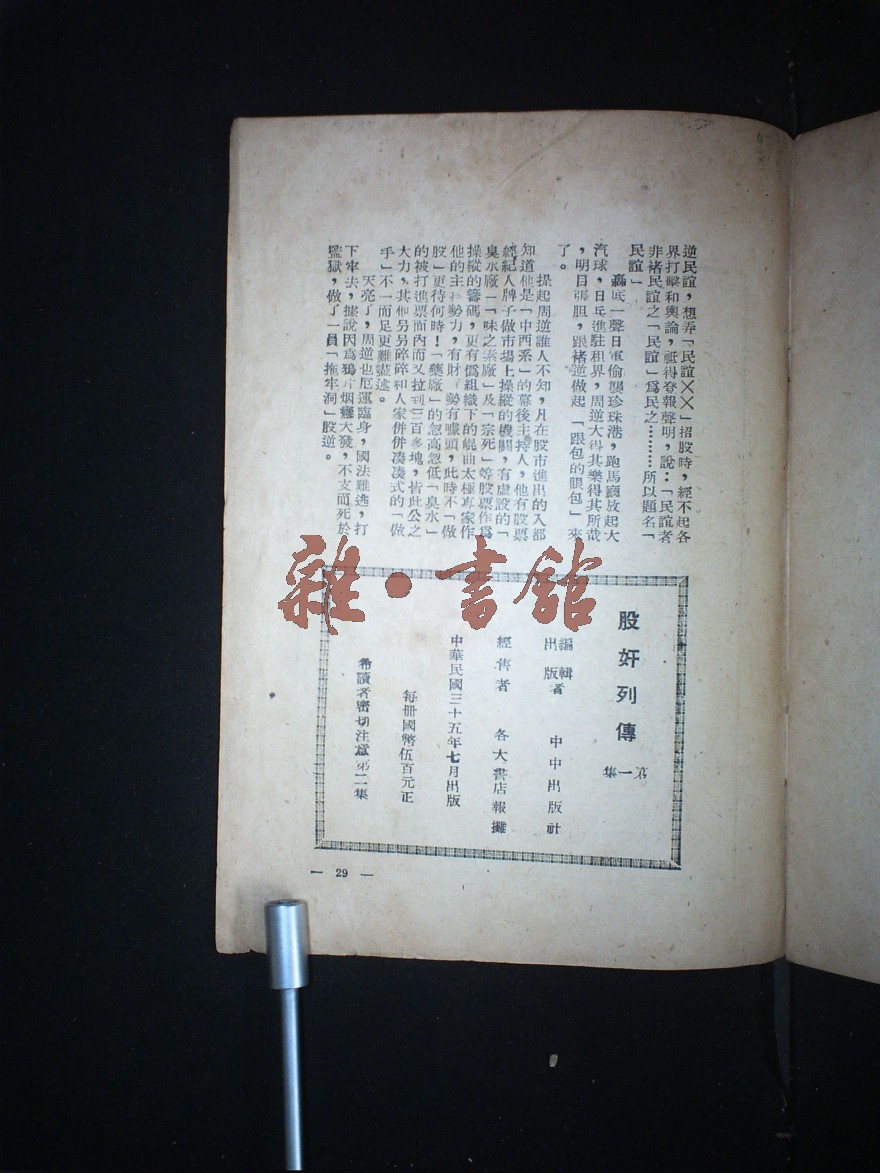 逆民誼，想弄「民誼××」招股時，經不起各
界打擊和輿論，祇得登報聲明，說：「民誼者
非褚民誼之「民誼」爲民之………所以題名「
民誼」
轟底一聲日軍偷襲珍珠港，跑馬廳放起大
汽球，日兵進駐租界，周逆大得其樂得其所哉
，明目張胆，跟褚逆做起「跟包的眼包」來
了。
操起周逆誰人不知，凡在股市進出的入都
知道他是「中西系」的幕後主持人，他有股票
經紀人牌子做市場上操縱的機關，有虛設的「
臭水廠」「味之素廠」及「宗死」等股票作爲
操縱的籌碼，更有僞組織下的崐曲太極專家作
他的主 勢力，有財 勢有噱頭，此時不「做
股」更待何時！「藥廠」的忽高忽低「臭水」
的被打進票面內而又拉到三百多塊，皆此公之
大力，其他另另碎碎和人家倂倂凑凑式的「做
手」不一而足更難盡述。
天亮了，周逆也厄運臨身，國法難逃，打
下牢去，據說因爲鴉片烟癮大發，不支而死於
監獄，做了一員「拖牢洞」股逆。
股奸列傳 第一集
編輯
出版者 中中出版社
經售者 各大書店報攤
中華民國三十五年七月出版
每冊國幣伍百元正
希讀者密切注意第二集
— 29 —
雜·書館